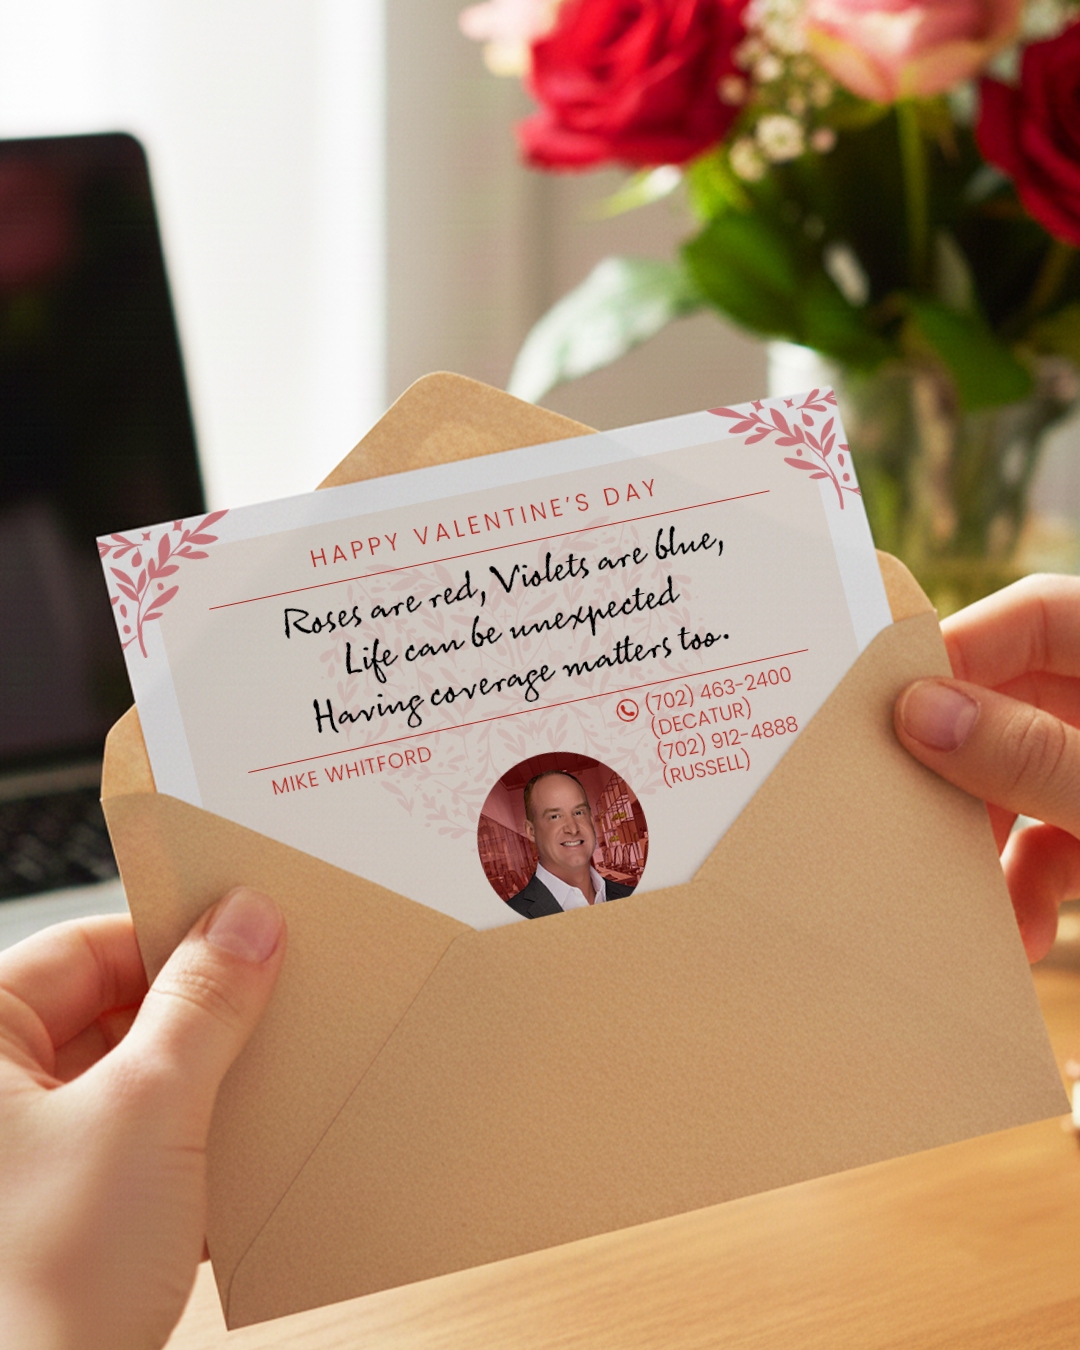 HAPPY VALENTINE'S DAY
Roses are red, Violets are blue,
Life can be unexpected
Having coverage matters too.
MIKE WHITFORD
(702) 463-2400
(DECATUR)
(702) 912-4888
(RUSSELL)